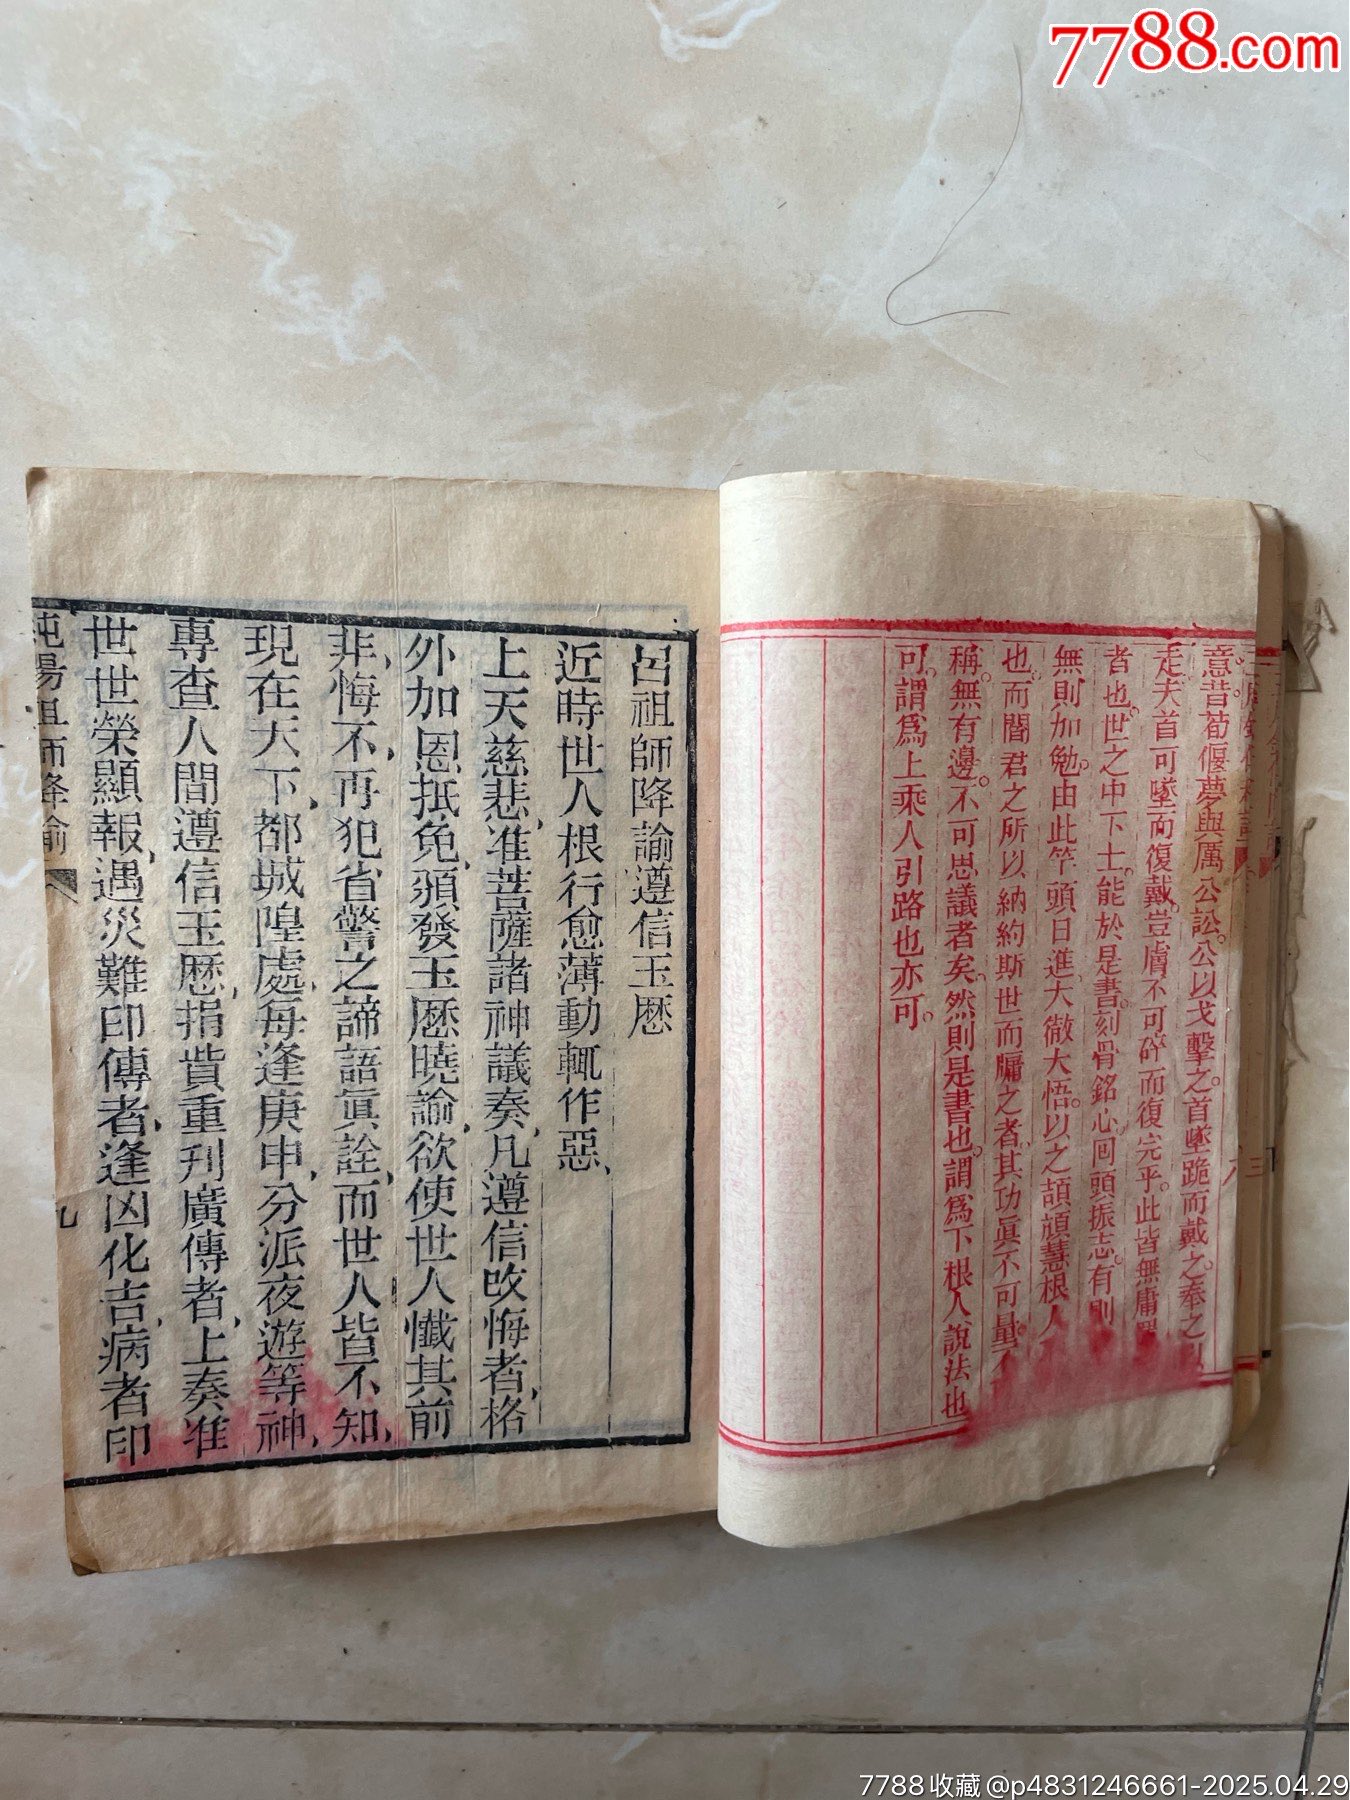 7788.com
意昔荀偃夢與厲公訟公以戈擊之首墜跪而戴之奉之以
走夫首可墜而復戴豈膚不可碎而復完乎此皆無庸
者也世之中下士能於是書刻骨銘心回頭振志有則
無則加勉由此竿頭日進大徹大悟以之頡頏慧根人
也而閻君之所以納約斯世而牖之者其功眞不可量
稱無有邊不可思議者矣然則是書也謂爲下根人說法也
可謂爲上乘人引路也亦可
呂祖師降諭遵信玉歷
近時世人根行愈薄動輒作惡
上天慈悲准菩薩諸神議奏凡遵信改悔者格
外加恩抵免頒發玉歷曉諭欲使世人懺其前
非悔不再犯省警之諦語眞詮而世人皆不知
現在天下都城隍處每逢庚申分派夜遊等神
專查人間遵信玉歷捐貲重刋廣傳者上奏准
世世榮顯報遇災難印傳者逢凶化吉病者印
純陽祖師降諭 九
7788收藏@p4831246661-2025.04.29